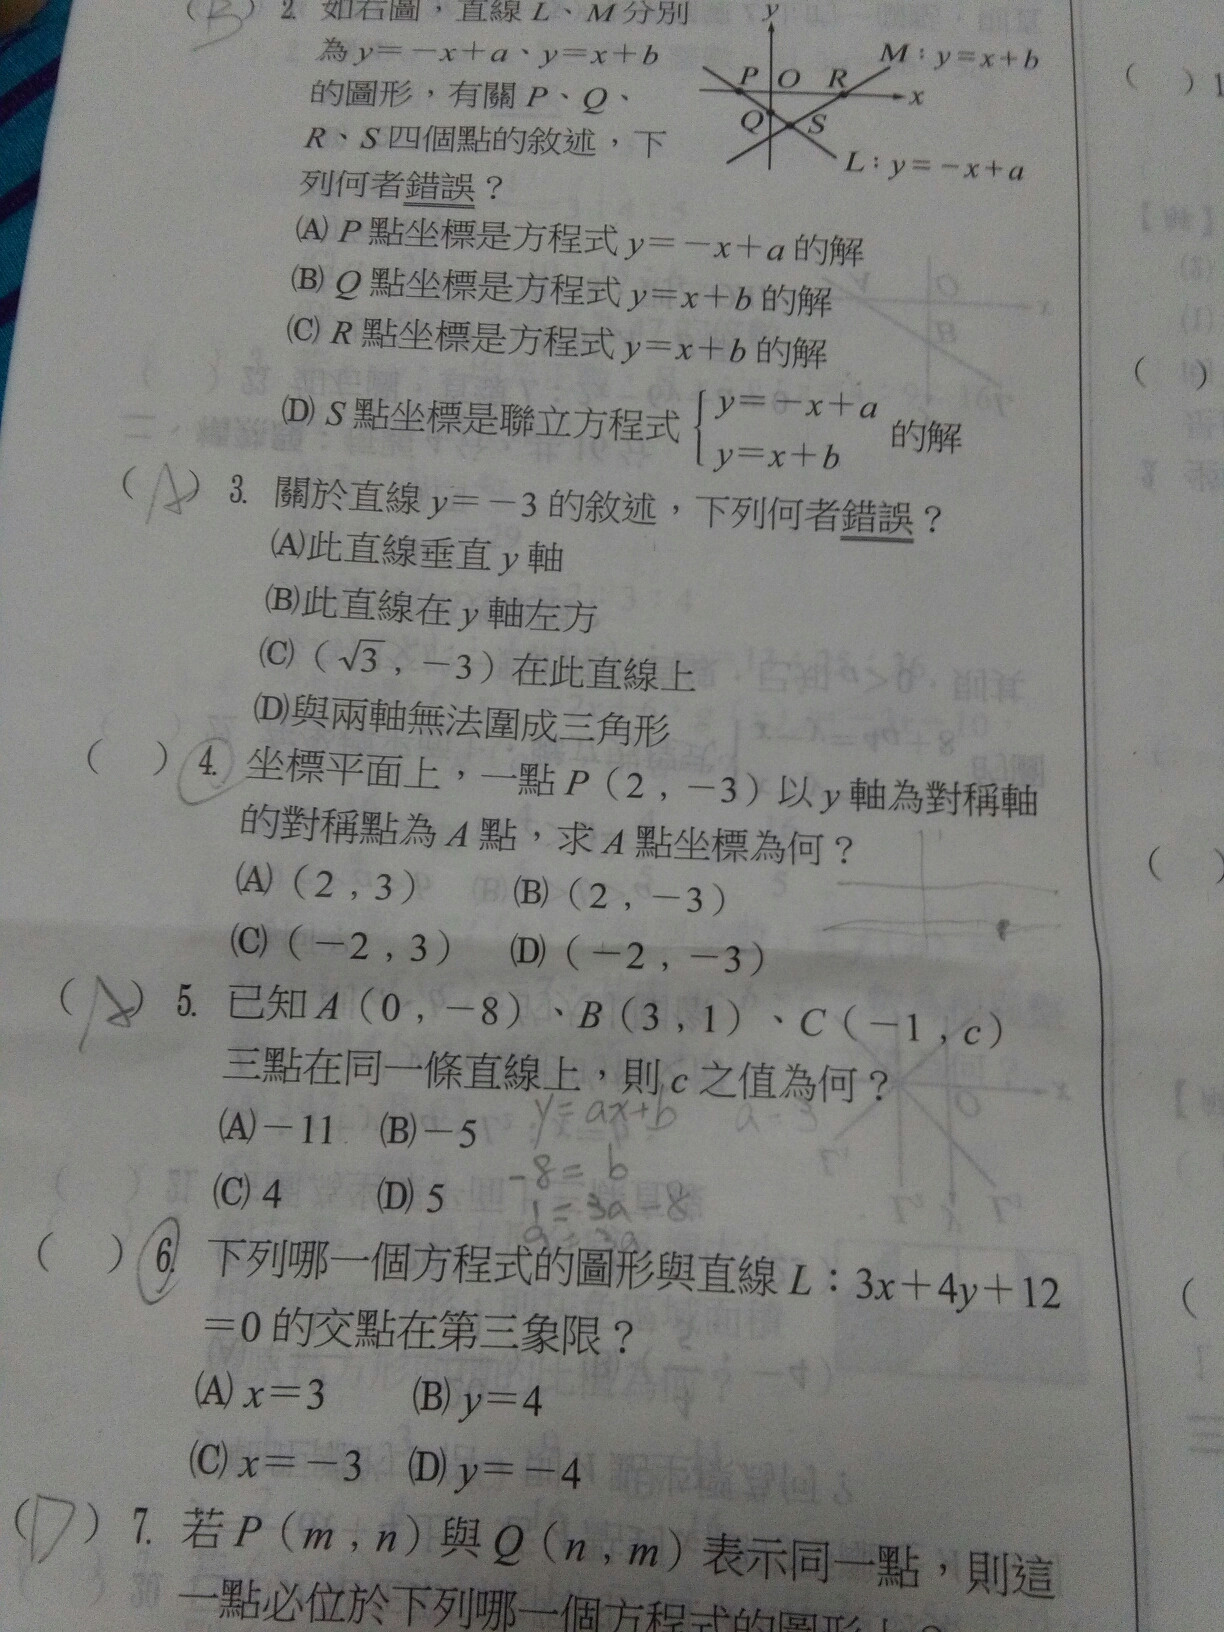 (B) 2. 如右圖，直線 L、M 分別
為 y＝－x＋a、y＝x＋b
的圖形，有關 P、Q、
R、S 四個點的敘述，下
列何者錯誤？
y
P O R
x
Q S
M：y＝x＋b
L：y＝－x＋a
(A) P 點坐標是方程式 y＝－x＋a 的解
(B) Q 點坐標是方程式 y＝x＋b 的解
(C) R 點坐標是方程式 y＝x＋b 的解
(D) S 點坐標是聯立方程式 { y＝－x＋a
y＝x＋b 的解
(A) 3. 關於直線 y＝－3 的敘述，下列何者錯誤？
(A)此直線垂直 y 軸
(B)此直線在 y 軸左方
(C)（√3，－3）在此直線上
(D)與兩軸無法圍成三角形
( ) 4. 坐標平面上，一點 P（2，－3）以 y 軸為對稱軸
的對稱點為 A 點，求 A 點坐標為何？
(A)（2，3） (B)（2，－3）
(C)（－2，3） (D)（－2，－3）
(A) 5. 已知 A（0，－8）、B（3，1）、C（－1，c）
三點在同一條直線上，則 c 之值為何？
y=ax+b
(A)－11 (B)－5
-8=b
(C) 4 (D) 5
1=3a-8
9=3a
( ) 6. 下列哪一個方程式的圖形與直線 L：3x＋4y＋12
＝0 的交點在第三象限？
(A) x＝3 (B) y＝4
(C) x＝－3 (D) y＝－4
(D) 7. 若 P（m，n）與 Q（n，m）表示同一點，則這
一點必位於下列哪一個方程式的圖形上？